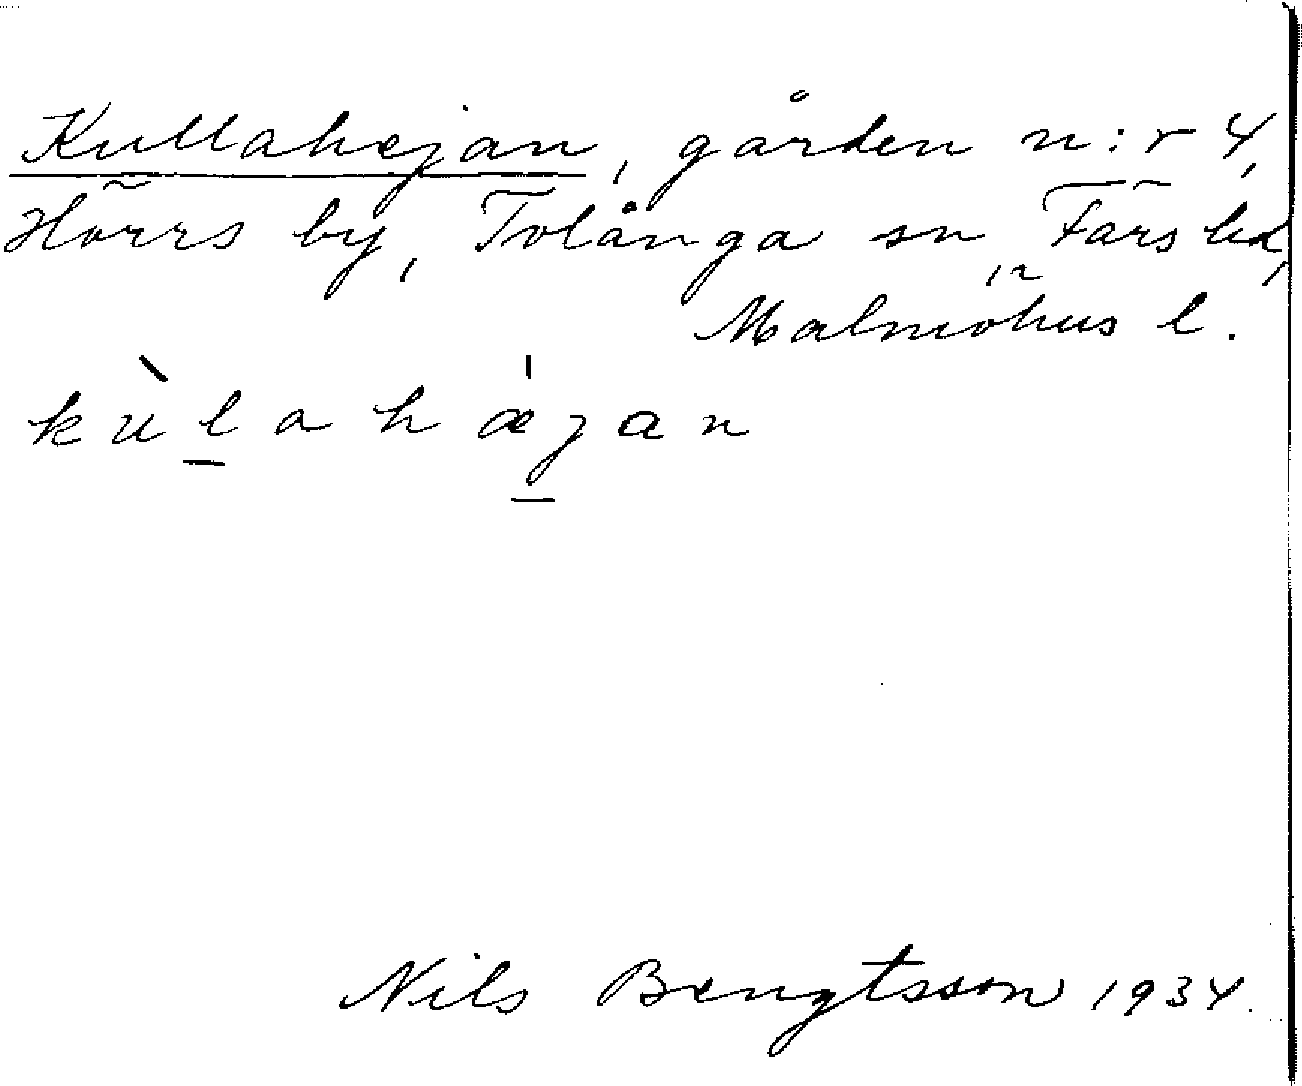 Kullahejan, gården n:r 4,
Hörrs by, Tolånga sn, Färs hd,
Malmöhus l.
kùlahǽjan
Nils Bengtsson 1934.